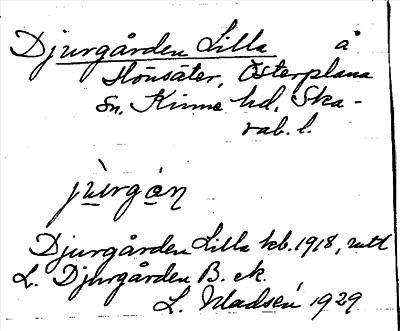 Djurgården Lilla å
Hönsäter, Österplana
Sn. Kinne hd, Ska-
rab. l.
jùrgộn
Djurgården Lilla kb. 1918, vutl
L. Djurgården B. ek.
L. Madsén 1929